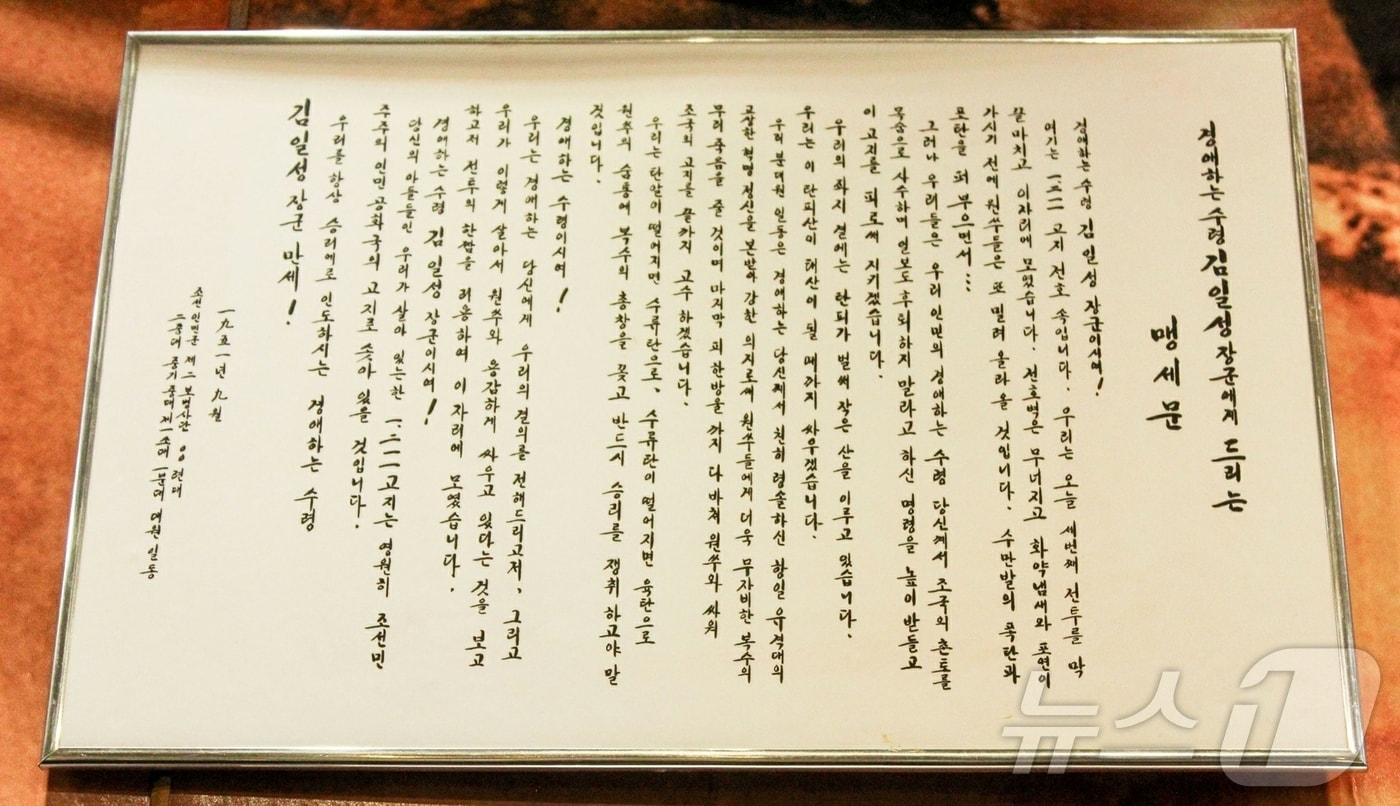 경애하는 수령 김일성 장군에게 드리는
맹세문
경애하는 수령 김일성 장군이시여!
여기는 一.二一一 고지 전호 속입니다. 우리는 오늘 세번째 전투를 막
끝마치고 이자리에 모였습니다. 전호벽은 무너지고 화약냄새와 포연이
가시기 전에 원쑤들은 또 밀려 올라 올 것입니다. 수만발의 폭탄과
포탄을 퍼 부으면서...
그러나 우리들은 우리 인민의 경애하는 수령 당신께서 조국의 촌토를
목숨으로 사수하며 일보도 후퇴하지 말라고 하신 명령을 높이 받들고
이 고지를 피로써 지키겠습니다.
우리의 좌지 곁에는 탄피가 벌써 작은 산을 이루고 있습니다.
우리는 이 탄피산이 태산이 될 때까지 싸우겠습니다.
우리 분대원 일동은 경애하는 당신께서 친히 령솔하신 항일 유격대의
고상한 혁명 정신을 본받아 강한 의지로써 원쑤들에게 더욱 무자비한 복수의
무리 죽음을 줄 것이며 마지막 피 한방울 까지 다 바쳐 원쑤와 싸워
조국의 고지를 끝까지 고수 하겠습니다.
우리는 탄알이 떨어지면 수류탄으로, 수류탄이 떨어지면 육탄으로
원쑤의 숨통에 복수의 총창을 꽂고 반드시 승리를 쟁취 하고야 말
것입니다.
경애하는 수령이시여!
우리는 경애하는 당신에게 우리의 결의를 전해드리고저, 그리고
우리가 이렇게 살아서 원쑤와 용감하게 싸우고 있다는 것을 보고
하고저 전투의 한짬을 리용하여 이 자리에 모였습니다.
경애하는 수령 김일성 장군이시여!
당신의 아들들인 우리가 살아 있는한 一.二一一고지는 영원히 조선민
주주의 인민 공화국의 고지로 솟아 있을 것입니다.
우리를 항상 승리에로 인도하시는 경애하는 수령
김일성 장군 만세!
一九五一년 九월
조선인민군 제二 보병사단 00련대
二중대 중기중대 제一소대 一분대 대원 일동
뉴스1